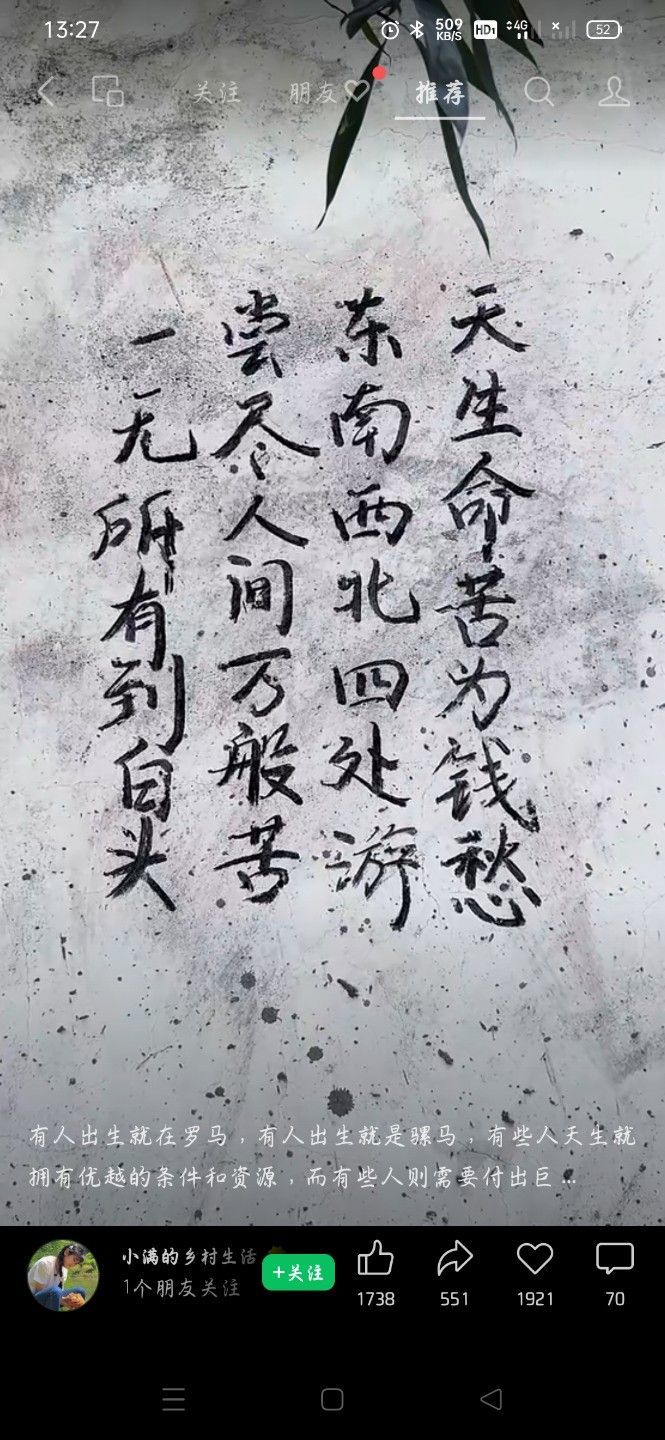 13:27
509
KB/S
HD1
4G
52
关注
朋友
推荐
天生命苦为钱愁
东南西北四处游
尝尽人间万般苦
一无所有到白头
有人出生就在罗马，有人出生就是骡马，有些人天生就
拥有优越的条件和资源，而有些人则需要付出巨...
小满的乡村生活
1个朋友关注
+关注
1738
551
1921
70